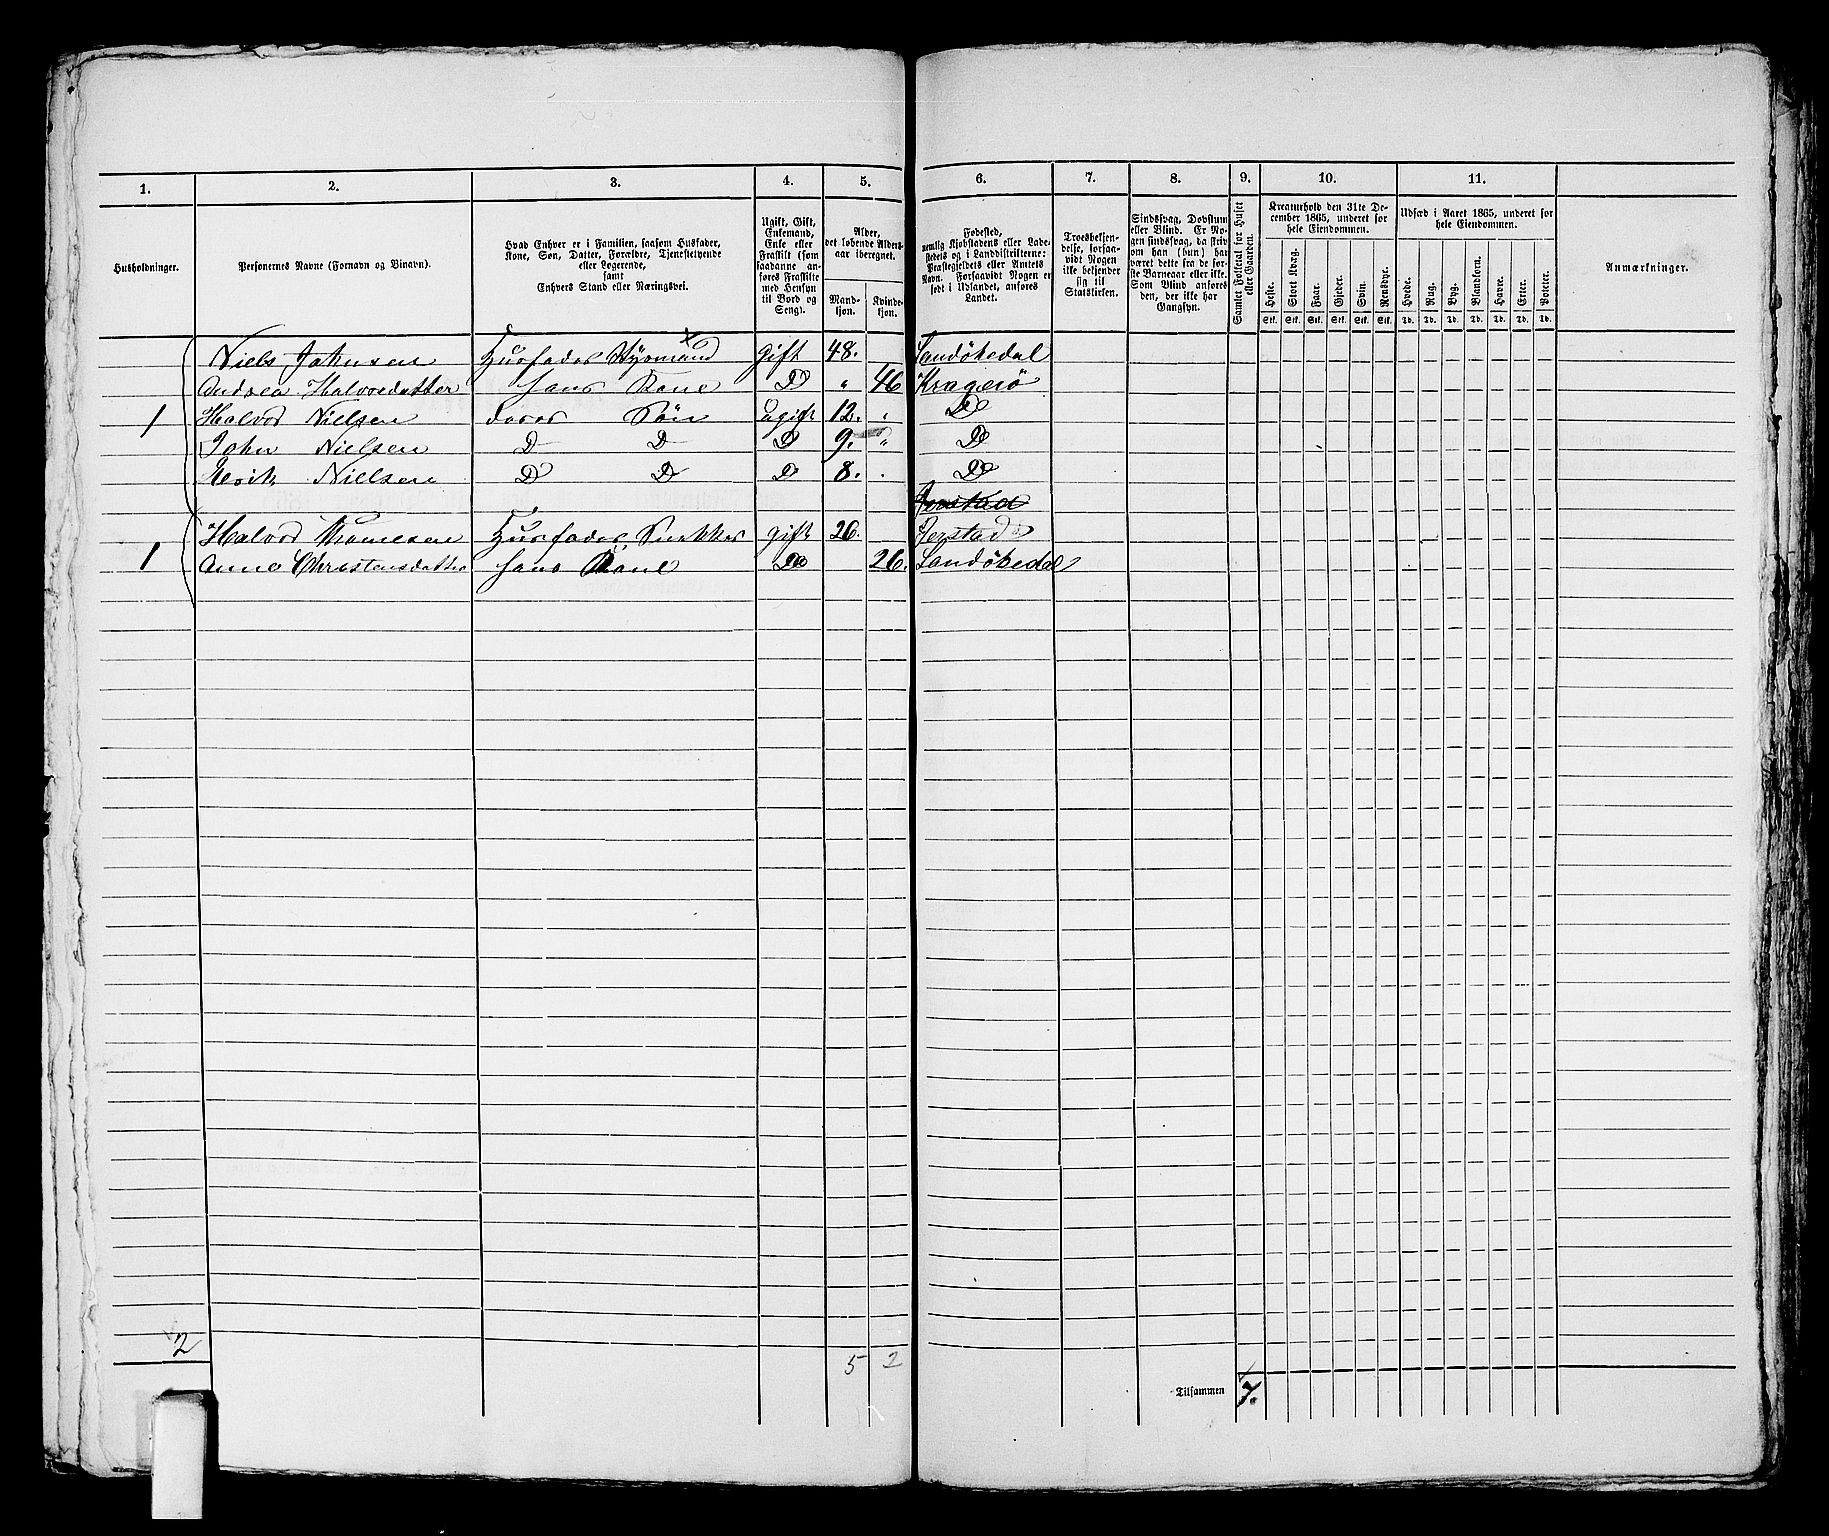 1. 2. 3. 4. 5. 6. 7. 8. 9. 10. 11.
Husholdninger.
Personernes Navne (Fornavn og Binavn).
Hvad Enhver er i Familien, saasom Husfader,
Kone, Søn, Datter, Forældre, Tjenestetyende
eller Logerende,
samt
Enhvers Stand eller Næringsvei.
Ugift, Gift,
Enkemand,
Enke eller
Fraskilt (som
saadanne an-
føres Fraskilte
med Hensyn
til Bord og
Seng).
Alder,
det løbende Alders-
aar iberegnet.
Mand-
kjøn.
Kvinde-
kjøn.
Fødested,
nemlig Kjøbstadens eller Lade-
stedets og i Landdistrikterne:
Præstegjeldets eller Amtets
Navn. Forsaavidt Nogen er
født i Udlandet, anføres
Landet.
Troesbekjen-
delse, forsaa-
vidt Nogen
ikke bekjender
sig til
Statskirken.
Sindssvag, Døvstum
eller Blind. Er No-
gen sindssvag, da skriv
om han (hun) har
været dette fra de før-
ste Barneaar eller ikke.
Som Blind anføres
den, der ikke har
Gangsyn.
Samlet Folketal for Huset
eller Gaarden.
Kreaturhold den 31te De-
cember 1865, underet for
hele Eiendommen.
Heste. Stort Kvæg. Faar. Gjeder. Svin. Rensdyr.
Stk. Stk. Stk. Stk. Stk. Stk.
Udsæd i Aaret 1865, underet for
hele Eiendommen.
Hvede. Rug. Byg. Blandkorn. Havre. Erter. Poteter.
Td. Td. Td. Td. Td. Td. Td.
Anmærkninger.
Niels Johnsen Husfader Styrmand gift 48. Sandøkedal
Andrea Halvorsdatter hans Kone D " 46 Kragerø
1 Halvor Nielsen deres Søn Ugift 12. " D
John Nielsen D D D 9. " D
Nielsen D D D 8. . D
Halvor Thomesen Husfader, Snekker gift 26. Jerstad
1 Anne Christensdatter hans Kone Do 26. Sandøkedal
2 5 2
Tilsammen 7.